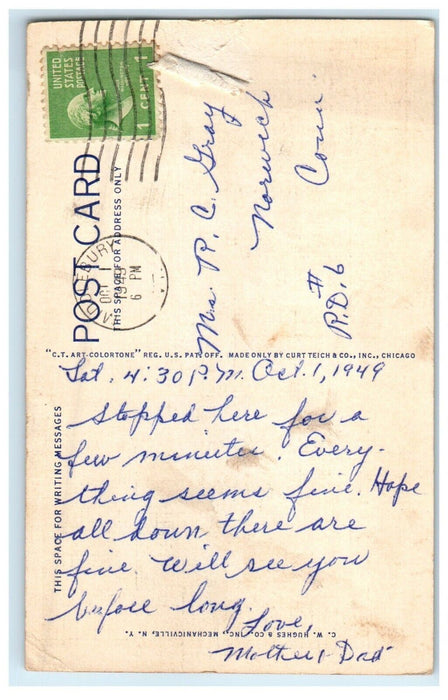 UNITED
STATES
POSTAGE
1 CENT 1
POST CARD
THIS SPACE FOR ADDRESS ONLY
OCT 1
1949
6 PM
Mrs R. C. Gray
Norwich
Conn
R.D. #6
"C.T. ART-COLORTONE" REG. U.S. PAT. OFF. MADE ONLY BY CURT TEICH & CO., INC., CHICAGO
Sat. 4:30 P.M. Oct. 1, 1949
THIS SPACE FOR WRITING MESSAGES
Stopped here for a
few minutes. Every-
thing seems fine. Hope
all down there are
fine. Will see you
before long.
Love,
Mother & Dad
C. W. HUGHES & CO., INC., MECHANICVILLE, N. Y.